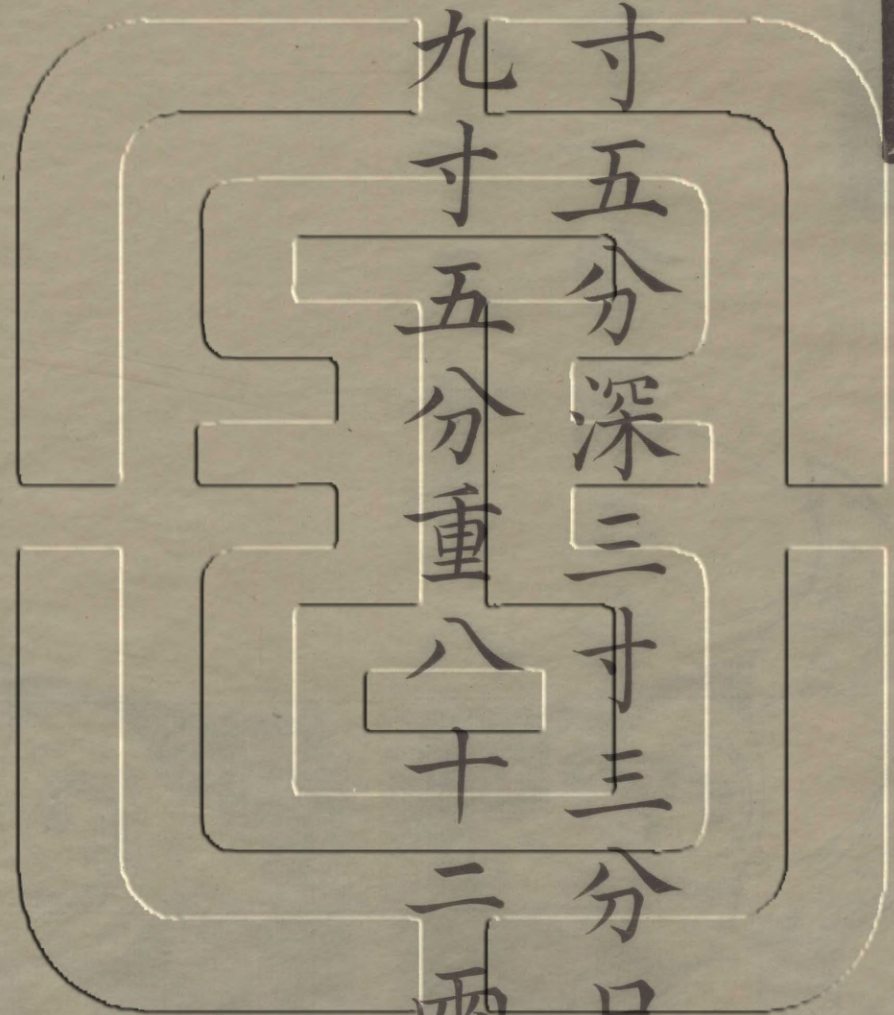 寸五分深三寸三分口
九寸五分重八十二兩